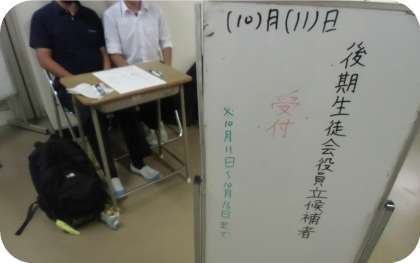 (10)月(11)日
後期生徒会役員立候補者
受付
※10月11日~10月13日まで